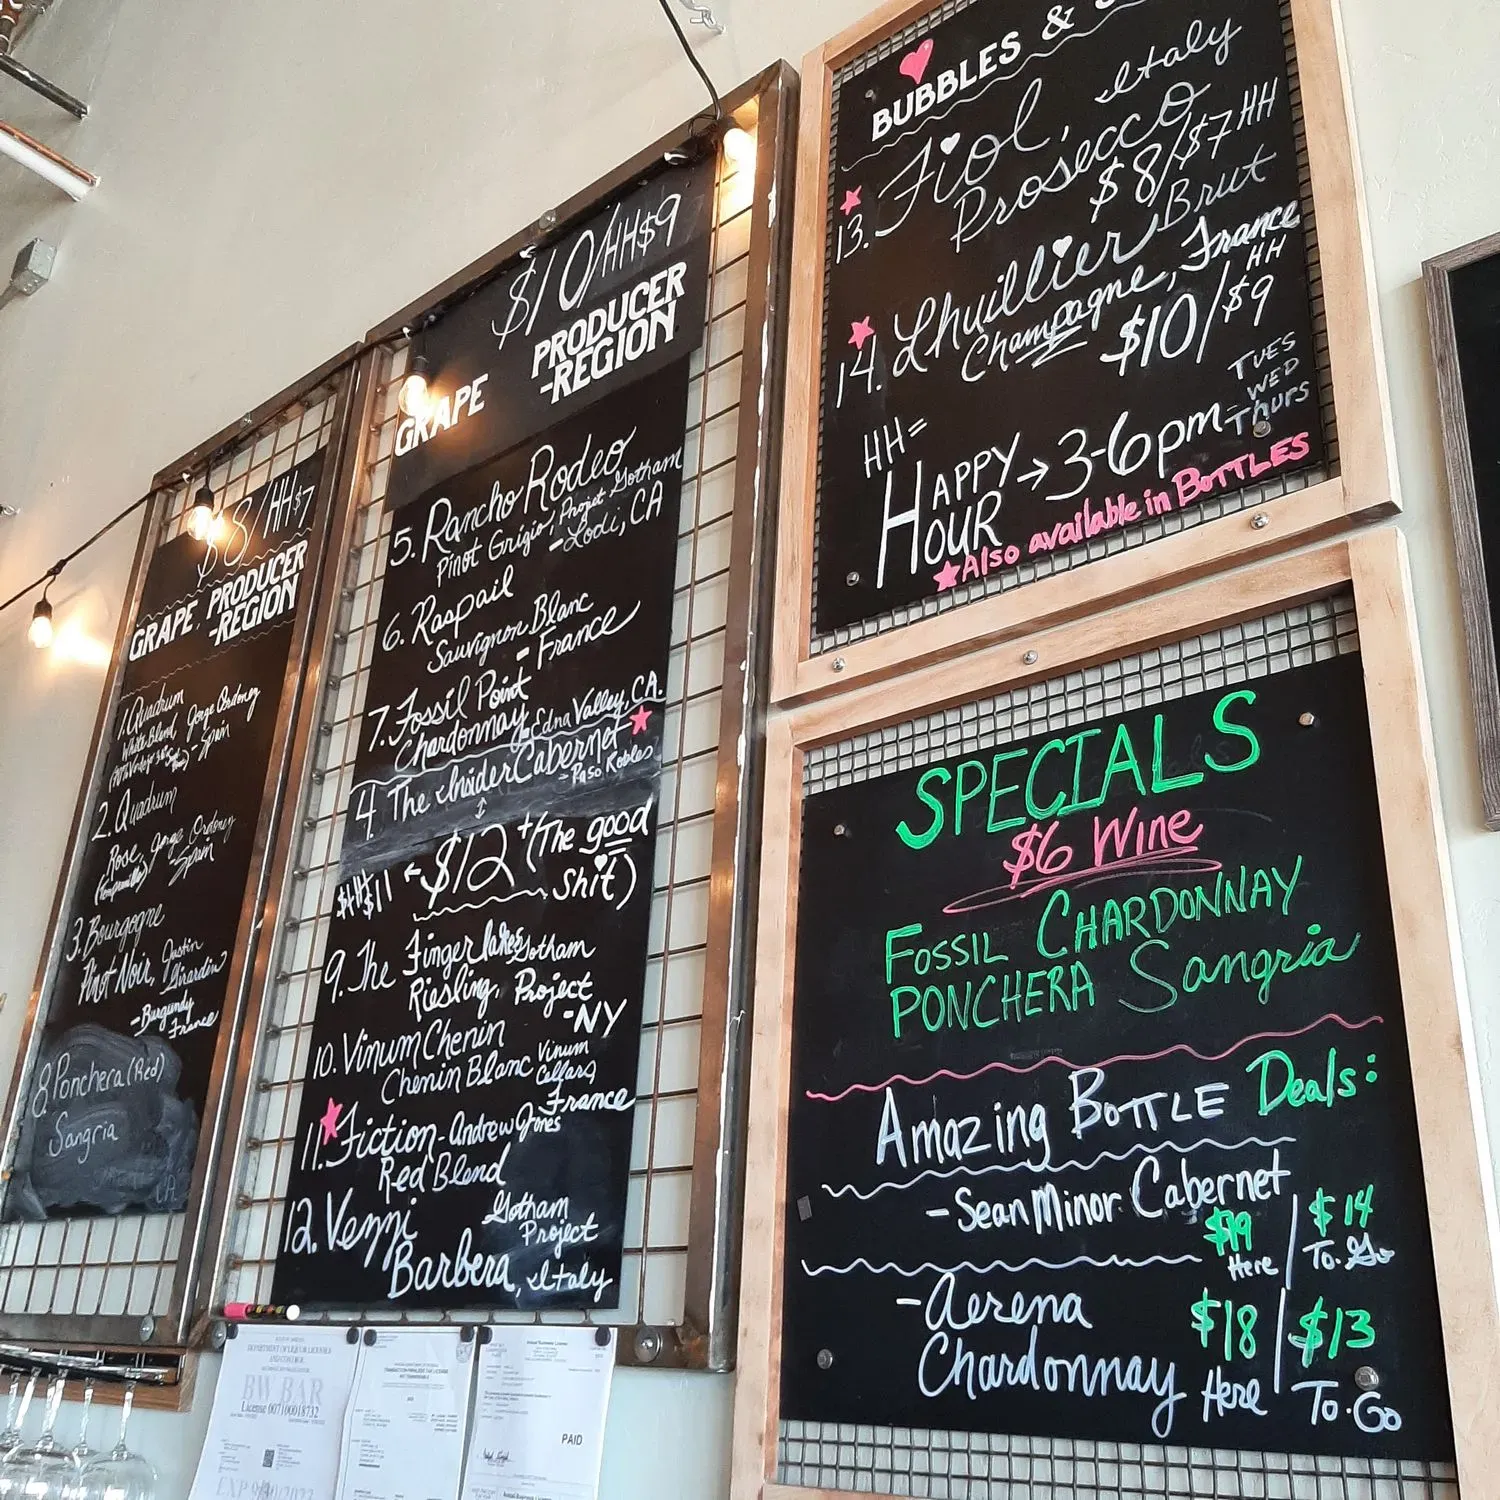 $8/HH$7
GRAPE, PRODUCER
-REGION
1. Quadrum
White Blend, Jorge Ordonez
- Spain
2. Quadrum
Rose, Jorge Ordonez
- Spain
3. Bourgogne
Pinot Noir, Justin
Girardin
- Burgundy
France
8. Ponchera (Red)
Sangria
$10/HH$9
GRAPE PRODUCER
-REGION
5. Rancho Rodeo
Pinot Grigio, Projet Gotham
- Lodi, CA
6. Raspail
Sauvignon Blanc
- France
7. Fossil Point
Chardonnay, Edna Valley, CA.
4. The Insider Cabernet
- Paso Robles
HH $11 $12 + (The good
shit)
9. The Finger lakes Gotham
Riesling, Project
-NY
10. Vinum Chenin
Chenin Blanc Vinum
Cellars,
France
11. Fiction - Andrew Jones
Red Blend
12. Venzi Gotham
Project
Barbera, Italy
BUBBLES &
13. Fiol, Italy
Prosecco
$8/$7 HH
14. Lhuillier Brut
Champagne, France
$10/$9 HH
HH=
HAPPY
HOUR → 3-6pm - TUES
WED
Thurs
Also available in BOTTLES
SPECIALS
$6 Wine
FOSSIL CHARDONNAY
PONCHERA Sangria
Amazing BOTTLE Deals:
- Sean Minor Cabernet
$19 Here | $14 To-Go
- Aerena
Chardonnay
$18 Here | $13 To-Go
DEPARTMENT OF LIQUOR LICENSES
AND CONTROL
BW BAR
License 007100018732
PAID